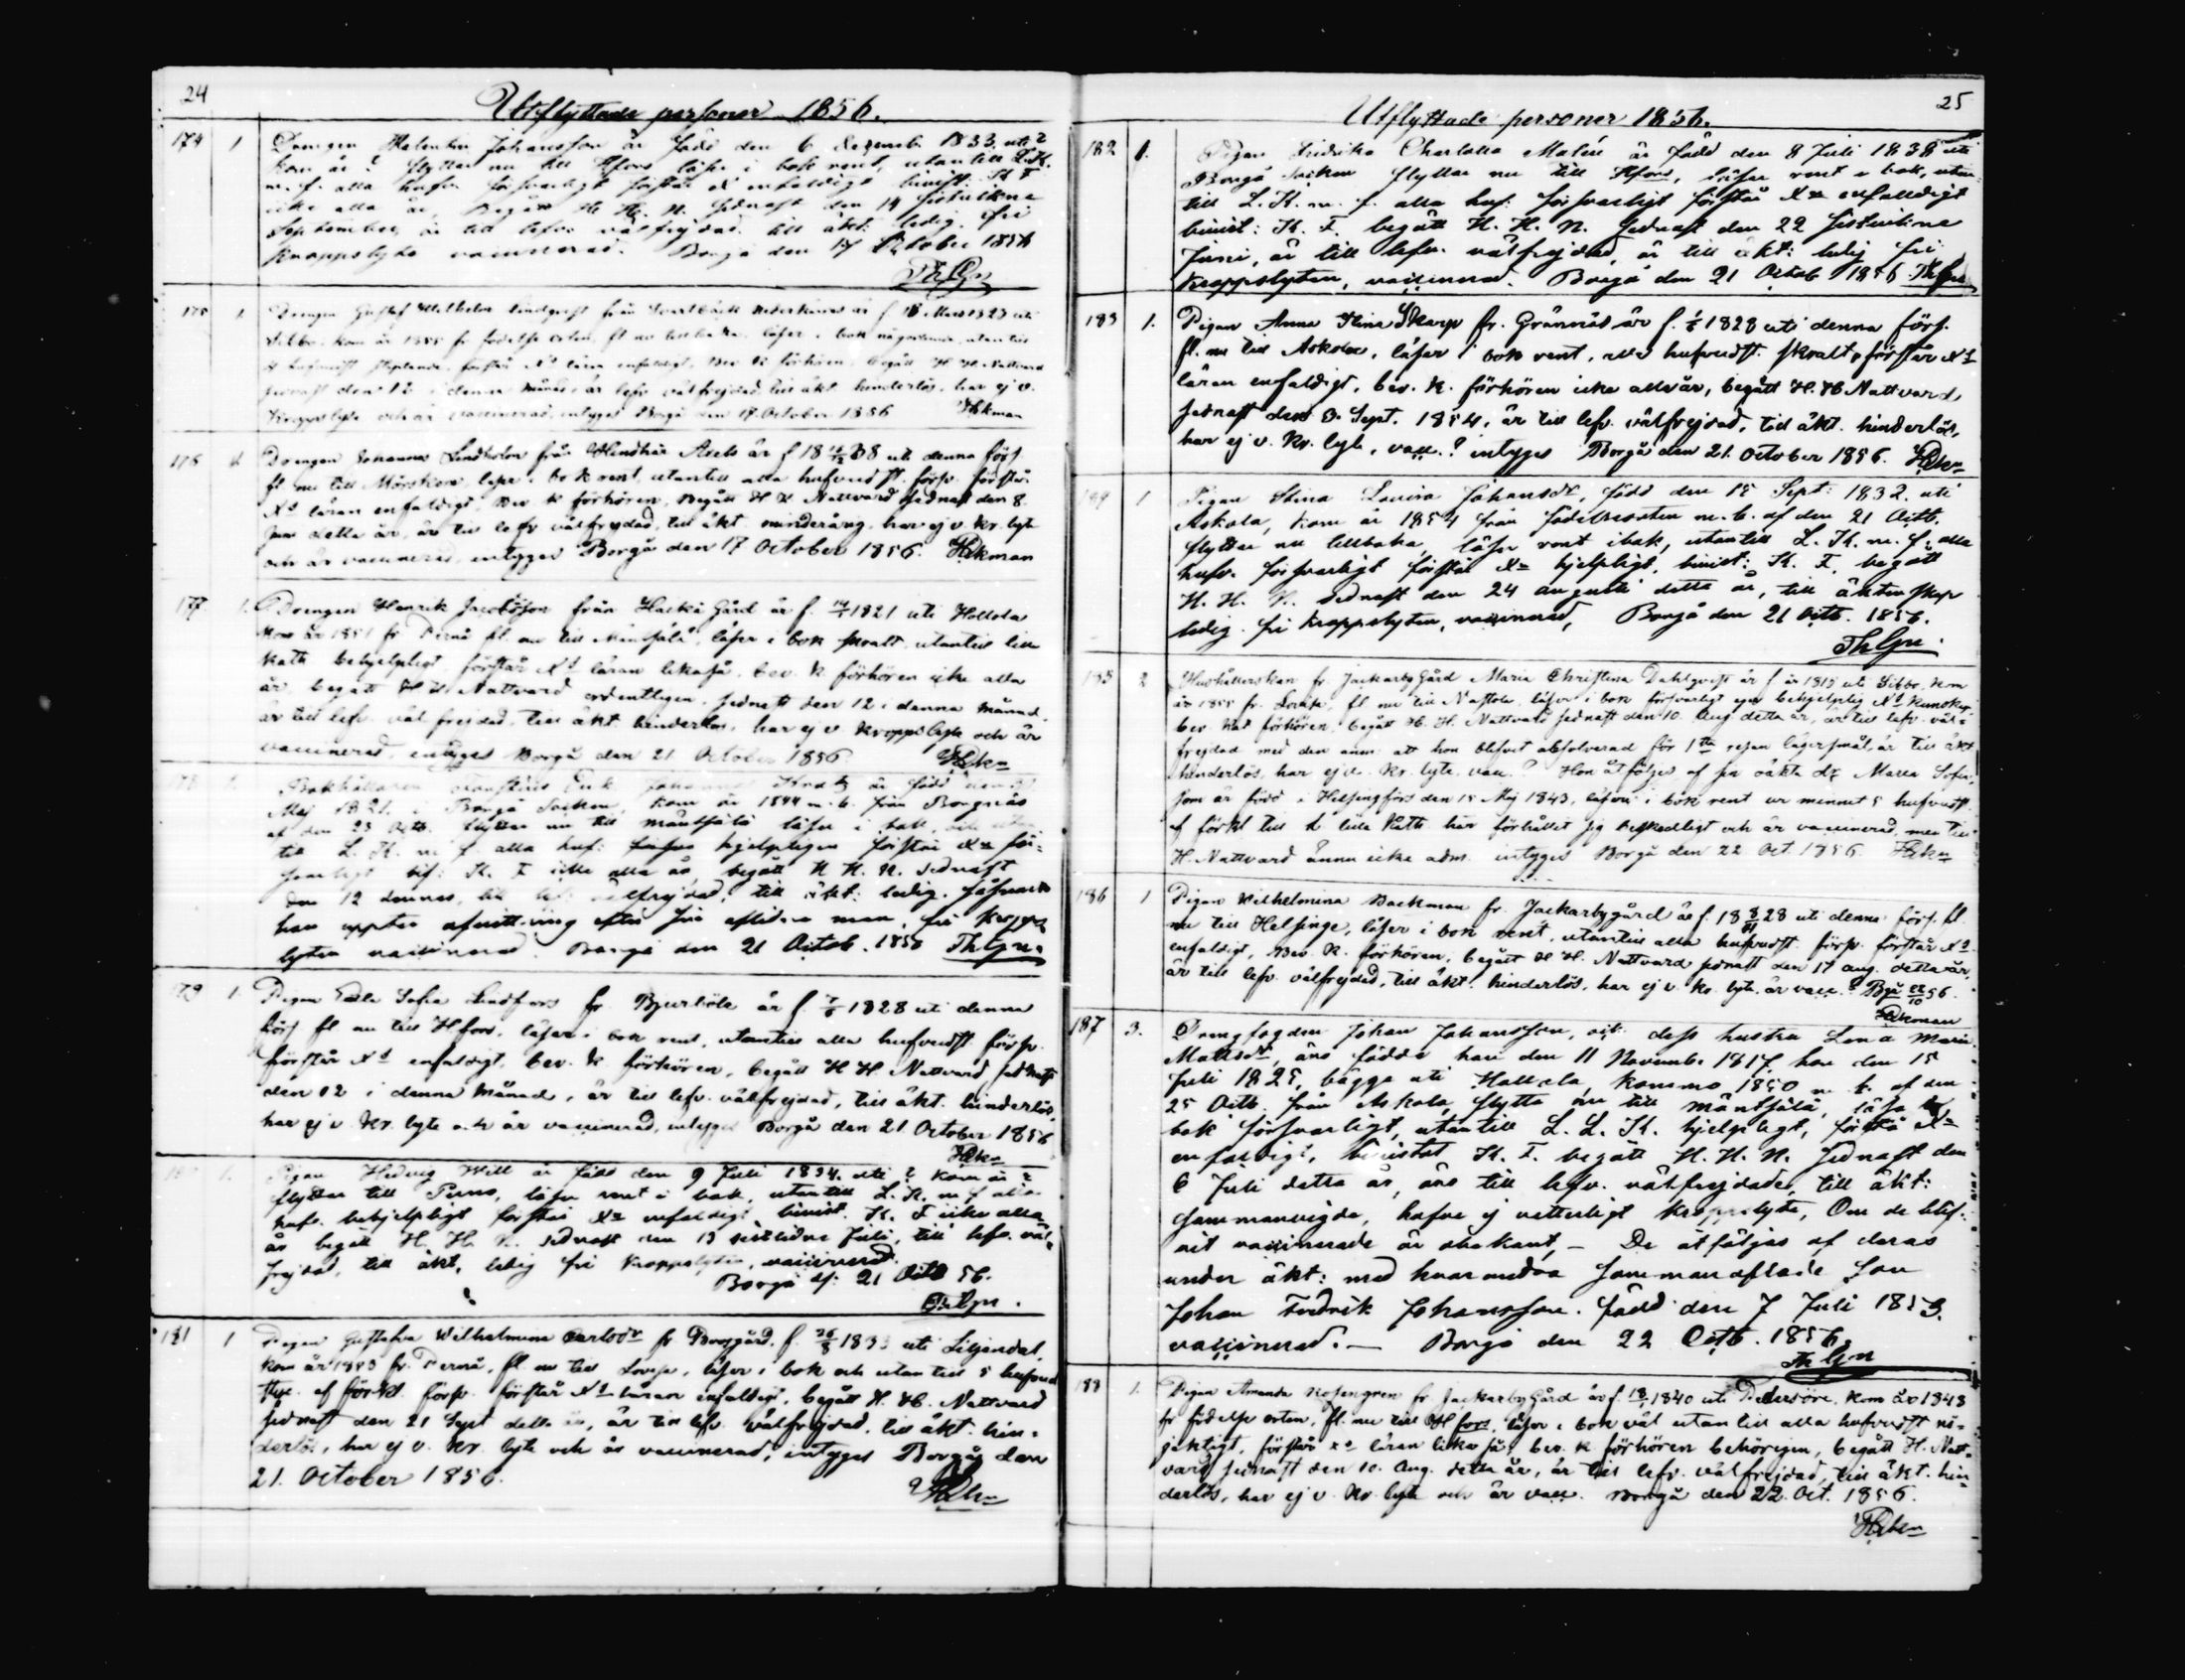 24
Utflyttade personer 1856.
174 1 Drengen Johansson är född den 6 Decemb. 1833, uti ?
kom år ? flyttar nu till Hfors läser i bok rent, utantill L. K.
m. f. alla hufv. försvarligt förstår Xd enfaldigt bivist. K. F.
icke alla år, Begått H. H. N. sednast den 14 sistvikne
September, är till lefver. välfrejdad, till äkt: ledig, fri
kroppslyte vaccinerad. Borgå den 17 October 1856
ThGn
175 1. Drengen Gustaf Wilhelm Lindqvist från Svartbäck är f. 1823 uti
Sibbo, kom år 1855 fr. födelse orten, fl. nu tillbaka, läser i bok någorlunda, utantill
förstår Xd läran enfaldigt, Bev. K förhören, begått H. H. Nattvard
sednast den 12 i denna månad är till lefv. välfrejdad, till äkt. hinderlös, har ej v.
kroppslyte och är vaccinerad, intygas Borgå den 17 October 1856 Hckman
176 1 Drengen Johannes Lindholm från Hindhår är f. 18 38 uti denna förs.
fl. nu till Mörskom, läser i bok rent, utantill alla hufvudst. försv. förstår
Xd läran enfaldigt, Bev. K förhören, Begått H. H. Nattvard sednast den 8
Juni detta år, är till lefv. välfrejdad, till äkt. minderårig, har ej v. kr. lyte
och är vaccinerad, intygas Borgå den 17 October 1856. Hckman
177 1. Drengen Henrik Jacobsson från Haikå Gård är f. 1821 uti Hollola
kom år 1851 fr. Pernå fl. nu till Mäntsälä, läser i bok svalt, utantill lilla
kath. behjelpligt, förstår Xd läran likaså, bev. K förhören icke alla
år, begått H. H. Nattvard ordentligen, sednast den 12 i denna månad,
är till lefv. välfrejdad, till äkt. hinderlös, har ej v. kroppslyte och är
vaccinerad, intygas Borgå den 21 October 1856
Hckn
Bokhållaren är född
Maj 1821. i Borgå Socken, kom år 1844 m. b. från Borgnäs
af den 23 Octb. flyttar nu till Mäntsälä läser i bok, och utan
till L. K. m. f. alla huf: hjelpligen förstår Xdn för-
svarligt bif: K. F. icke alla år, begått H. H. N. sednast
den 12 dennes, till lef: välfrejdad, till äkt: ledig, såframt
hon uppter afvittring efter sin aflidne man, fri kropps
lyten vaccinerad. Borgå den 21 Octob. 1856 ThGn.
179 1. Pigan Edla Sofia Lindfors fr. Bjurböle är f. 1828 uti denna
förs. fl. nu till Hfors, läser i bok rent, utantill alla hufvudst. försv.
förstår Xd enfaldigt, bev. K förhören, begått H. H. Nattvard sednast
den 12 i denna månad, är till lefv. välfrejdad, till äkt. hinderlös,
har ej v. kr. lyte och är vaccinerad, intygas Borgå den 21 October 1856
Hckn
1. Pigan Hedvig Will är född den 9 Juli 1834. uti ? kom år ?
flyttar till Perno, läser rent i bok, utantill L. K. m. f. alla
hufv. behjelpligt förstår Xdn enfaldigt bivist. K. F. icke alla
år begått H. H. N. sednast den 13 sistlidne Juli, till lefv. väl-
frejdad, till äkt. ledig fri kroppslyten, vaccinerad.
Borgå d: 21 Octb 56.
ThGn.
181 1 Pigan Gustafva Wilhelmina Carlsdr fr. Borgård. f. 26/8 1833 uti Liljendal,
kom år 1853 fr. Pernå, fl. nu till Lovisa, läser i bok och utantill 5 hufvud
stye. af förkl. försv. förstår Xd läran enfaldigt, begått H. H. Nattvard
sednast den 21 Sept detta år, är till lefv. välfrejdad, till äkt. hin-
derlös, har ej v. kr. lyte och är vaccinerad, intygas Borgå den
21. October 1856.
Hckn
25
Utflyttade personer 1856.
182 1. Pigan Fredrika Charlotta Malén är född den 8 Juli 1838 uti
Borgå Socken flyttar nu till Hfors, läser rent i bok, utan-
till L. K. m. f. alla huf: försvarligt förstår Xdn enfalldigt
bivist: K. F. begått H. H. N. sednast den 22 sistvikne
Juni, är till lefv. välfrejdad, är till äkt: ledig fri
kroppslyten, vaccinerad. Borgå den 21 Octob 1856 ThGn
183 1. Pigan Anna Stina Skarp fr. Grännäs är f. 1828 uti denna förs.
fl. nu till Askola, läser i bok rent, alla hufvudst. svalt, förstår Xd
läran enfaldigt, bev. K. förhören icke alla år, begått H. H. Nattvard
sednast den 3. Sept. 1854, är till lefv. välfrejdad, till äkt. hinderlös,
har ej v. kr. lyte, vacc. ? intygas Borgå den 21. October 1856. Hckn
184 1 Pigan Stina Lovisa Johansdr, född den 15 Sept: 1832. uti
Askola, kom år 1854 från födelseorten m. b. af den 21 Octb.
flyttar nu tillbaka, läser rent i bok, utantill L. K. m. f. alla
hufv. försvarligt förstår Xdn hjelpligt, bivist: K. F. begått
H. H. N. sednast den 24 augusti detta år, till äktenskap
ledig. fri kroppslyten, vaccinerad, Borgå den 21 Octb. 1856.
ThGn.
185 2 Hushållerskan fr. Jackarby Gård Maria Christina Dahlqvist är f. år 1815 uti Sibbo, kom
år 1855 fr. Lovisa, fl. nu till Nastola, läser i bok försvarligt eger behjelplig Xd kunskap
bev. Kat. förhören, begått H. H. Nattvard sednast den 10. Aug detta år, är till lefv. väl-
frejdad med den anm. att hon blifvit absolverad för 1sta resan lägersmål, är till äkt
hinderlös, har ej v. kr. lyte, vacc. ? Hon åtföljes af sin oäkta dr Maria Sofia,
som är född i Helsingfors den 15 Maj 1843, läser i bok rent ur minnet 5 hufvudst
af förkl till l. lilla Kath. har förhållit sig beskedligt och är vaccinerad, men till
H. Nattvard ännu icke adm. intygas Borgå den 22 Oct. 1856 Hckn
186 1 Pigan Wilhelmina Backman fr. Jackarbygård är f. 18 28 uti denna förs. fl
nu till Helsinge, läser i bok rent, utantill alla hufvudst. försv. förstår Xd
enfaldigt, Bev. K. förhören, begått H. H. Nattvard sednast den 17 aug. detta år,
är till lefv. välfrejdad, till äkt. hinderlös, har ej v. kr. lyte, är vacc. ? Bgå 22/10 56.
Hckman
187 3. Drengfogden Johan Johansson, och dess hustru Lena Maria
Mattsdr, äro födde han den 11 Novemb. 1817, hon den 15
Juli 1825, bägge uti Hollola, kommo 1850 m. b. af den
25 Octb. från Askola, flytta nu till Mäntsälä, läsa i
bok försvarligt, utantill L. L. K. hjelpligt, förstå Xdn
enfaldigt, bivistat K. F. begått H. H. N. sednast den
6 Juli detta år, äro till lefv. välfrejdade, till äkt:
sammanvigde, hafva ej vetterligt kroppslyte, Om de blif-
vit vaccinerade är obekant, – De åtföljas af deras
under äkt: med hvarandra sammanaflade Son
Johan Fredrik Johansson. född den 7 Juli 1853.
vaccinerad. – Borgå den 22 Octb. 1856.
ThGn
188 1. Pigan Amanda Rosengren fr. Jackarby Gård är f. 1840 uti Pedersöre, kom år 1848
fr födelse orten, fl. nu till Hfors, läser i bok väl utantill alla hufvudst nö-
jaktigt, förstår Xd läran lika så, bev. K förhören behörigen, begått H. Natt-
vard sednast den 10. Aug. detta år, är till lefv. välfrejdad, till äkt. hin
derlös, har ej v. kr. lyte och är vacc. Borgå den 22. Oct. 1856.
Hckn